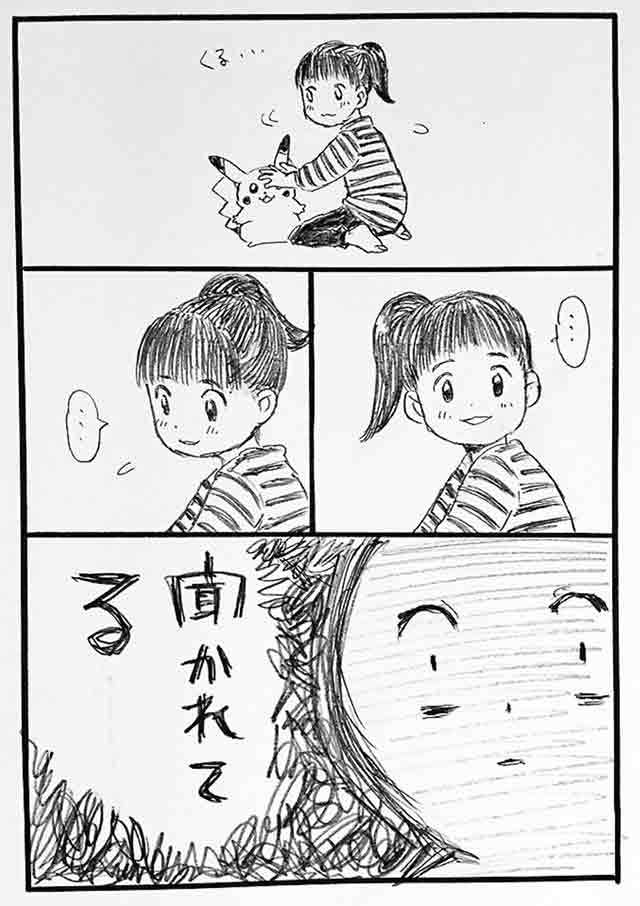 くる…
…
…
聞かれて
る